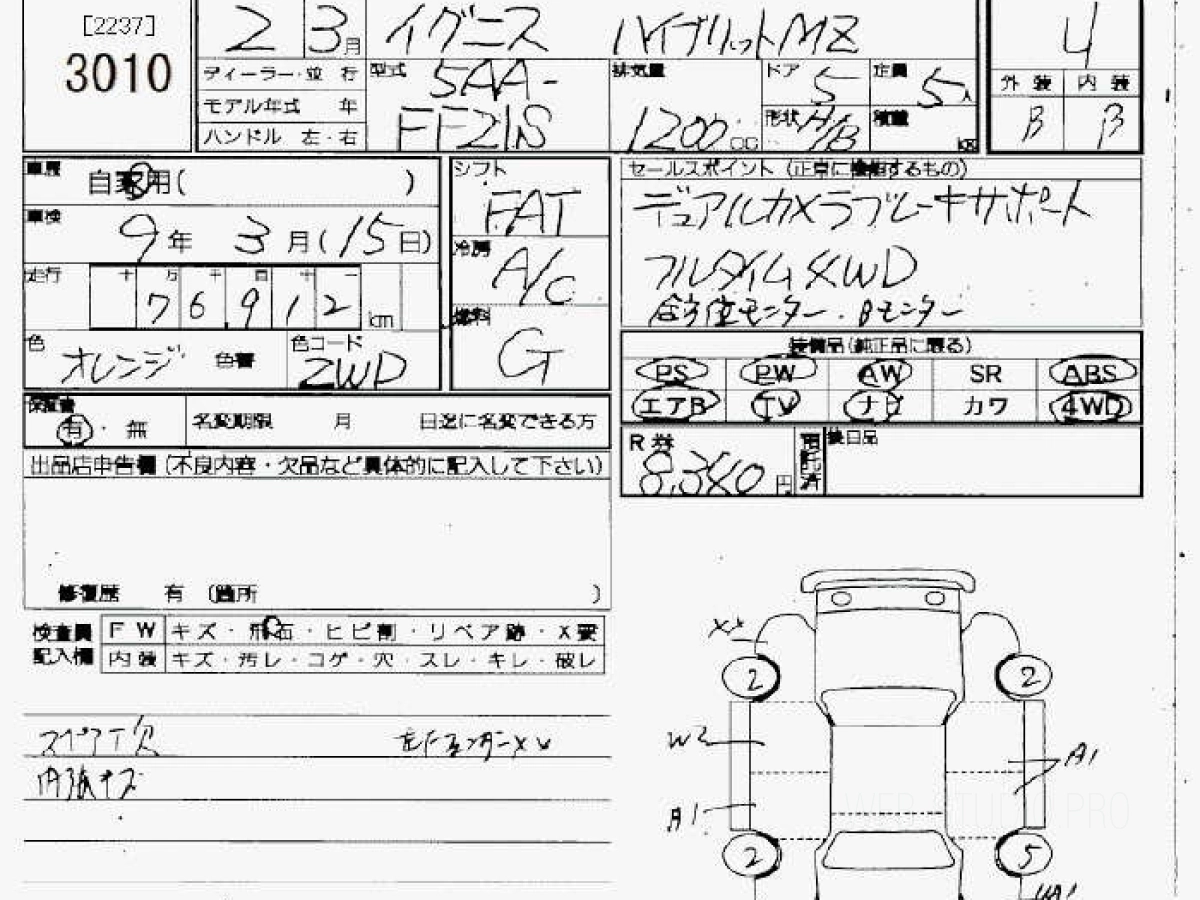 [2237]
3010
2 3月 イグニス ハイブリットMZ 4
ディーラー・並 行 型式 5AA- 排気量 ドア 5 定員 5人 外 装 内 装
モデル年式 年 FF21S 1200cc 形状 H/B 積量 kg B B
ハンドル 左・右
車歴 自家用( ) シフト FAT セールスポイント (正常に機能するもの)
デュアルカメラブレーキサポート
車検 9年 3月(15日) 冷房 A/C
フルタイム4WD
走行 十 万 千 百 十 一
76,912 km 燃料 G
全方位モニター・Bモニター
色 オレンジ 色替 色コード ZWD
装備品(純正品に限る)
PS PW AW SR ABS
エアB TV ナビ カワ 4WD
保証書 有・無 名変期限 月 日迄に名変できる方
R券 8,340円 預託済 後日品
出品店申告欄 (不良内容・欠品など具体的に記入して下さい)
修復歴 有 (箇所 )
検査員 FW キズ・飛石・ヒビ割・リペア跡・X要
記入欄 内装 キズ・汚レ・コゲ・穴・スレ・キレ・破レ
スペアT欠
内張キズ
2 2
W2
A1
A1
2 5
WEB STUDIO PRO